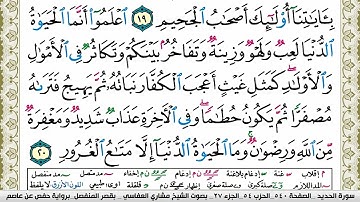 بِـَٔايَٰتِنَآ أُو۟لَٰٓئِكَ أَصْحَٰبُ ٱلْجَحِيمِ ١٩ ٱعْلَمُوٓا۟ أَنَّمَا ٱلْحَيَوٰةُ
ٱلدُّنْيَا لَعِبٌ وَلَهْوٌ وَزِينَةٌ وَتَفَاخُرٌۢ بَيْنَكُمْ وَتَكَاثُرٌ فِى ٱلْأَمْوَٰلِ
وَٱلْأَوْلَٰدِ كَمَثَلِ غَيْثٍ أَعْجَبَ ٱلْكُفَّارَ نَبَاتُهُۥ ثُمَّ يَهِيجُ فَتَرَىٰهُ
مُصْفَرًّا ثُمَّ يَكُونُ حُطَٰمًا وَفِى ٱلْءَاخِرَةِ عَذَابٌ شَدِيدٌ وَمَغْفِرَةٌ
مِّنَ ٱللَّهِ وَرِضْوَٰنٌ وَمَا ٱلْحَيَوٰةُ ٱلدُّنْيَآ إِلَّا مَتَٰعُ ٱلْغُرُورِ ٢٠
سورة الحديد - الصفحة ٥٤٠ - الجزء ٢٧ - بصوت الشيخ مشاري العفاسي - بقصر المنفصل - برواية حفص عن عاصم